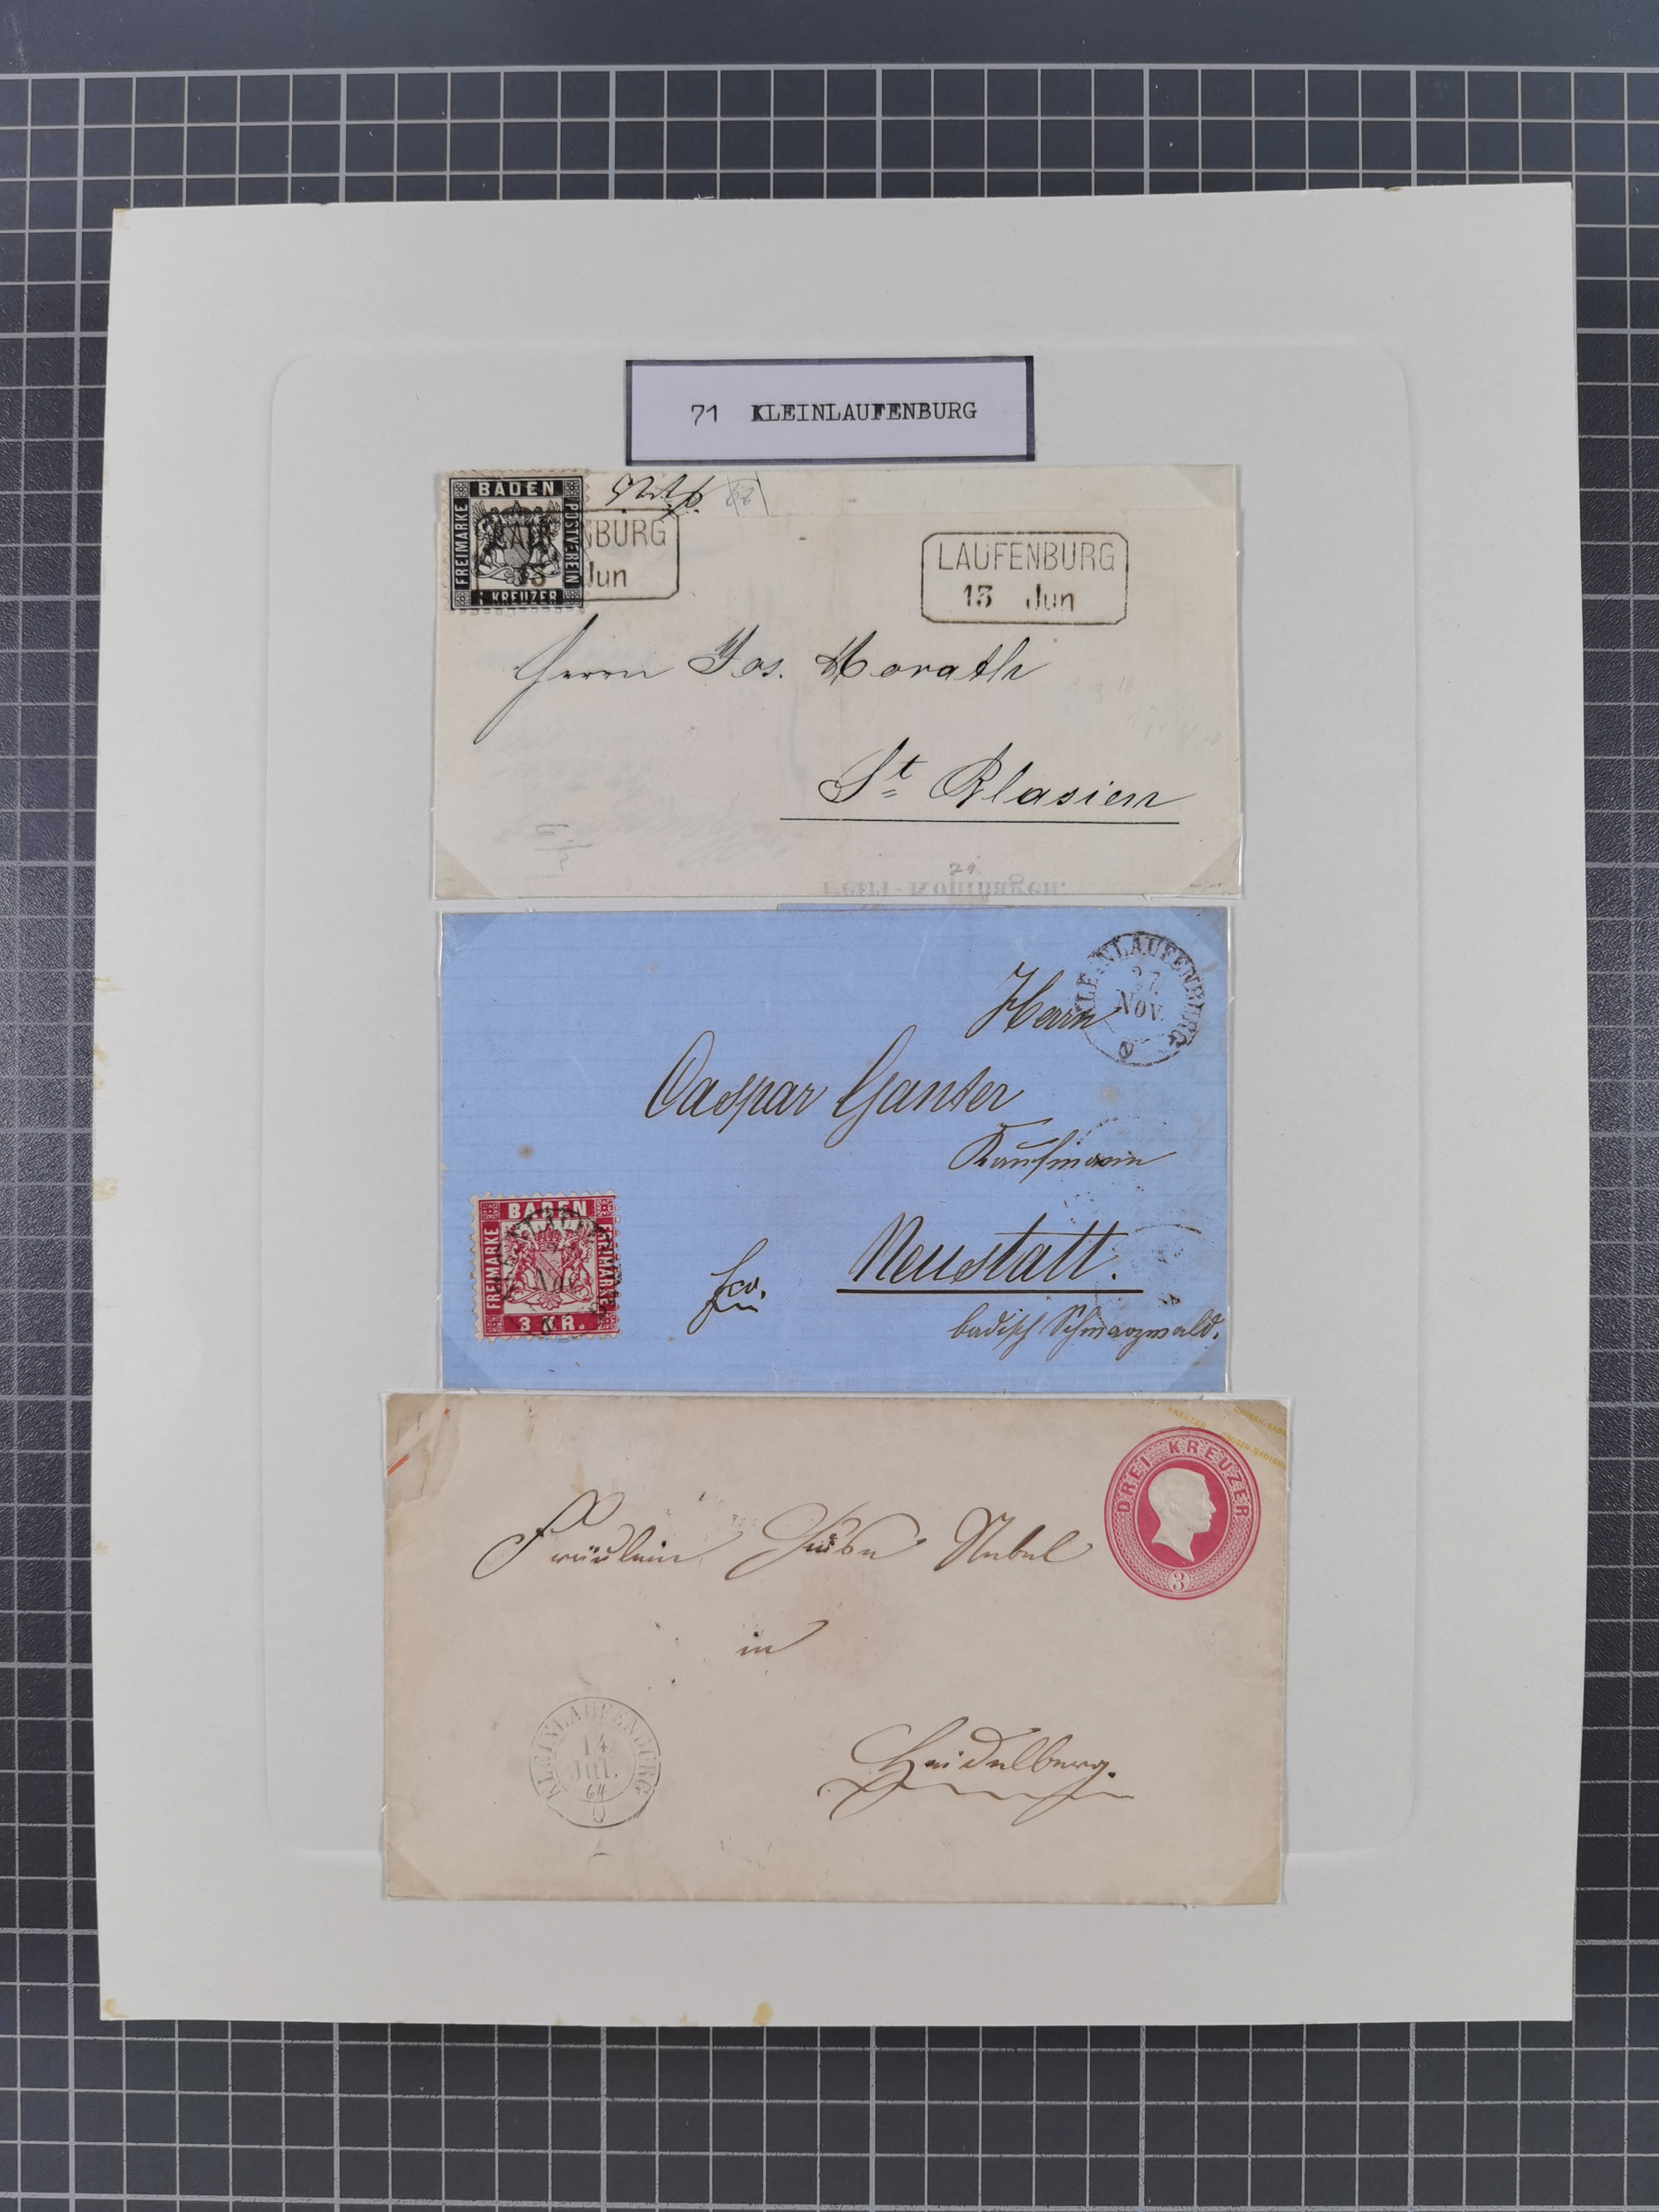 71 KLEINLAUFENBURG
BADEN
FREIMARKE
POSTVEREIN
1 KREUZER
LAUFENBURG
13 Jun
LAUFENBURG
13 Jun
Herrn Jos. Morath
St Blasien
KLEINLAUFENBURG
27.
Nov.
Herrn
Caspar Ganter
Kaufmann
BADEN
FREIMARKE
FREIMARKE
3 KR.
fco.
Neustatt.
badisch Schwarzwald.
DREI KREUZER
3
Fräulein
Nebel
in
Heidelberg.
KLEINLAUFENBURG
14
Jul.
64